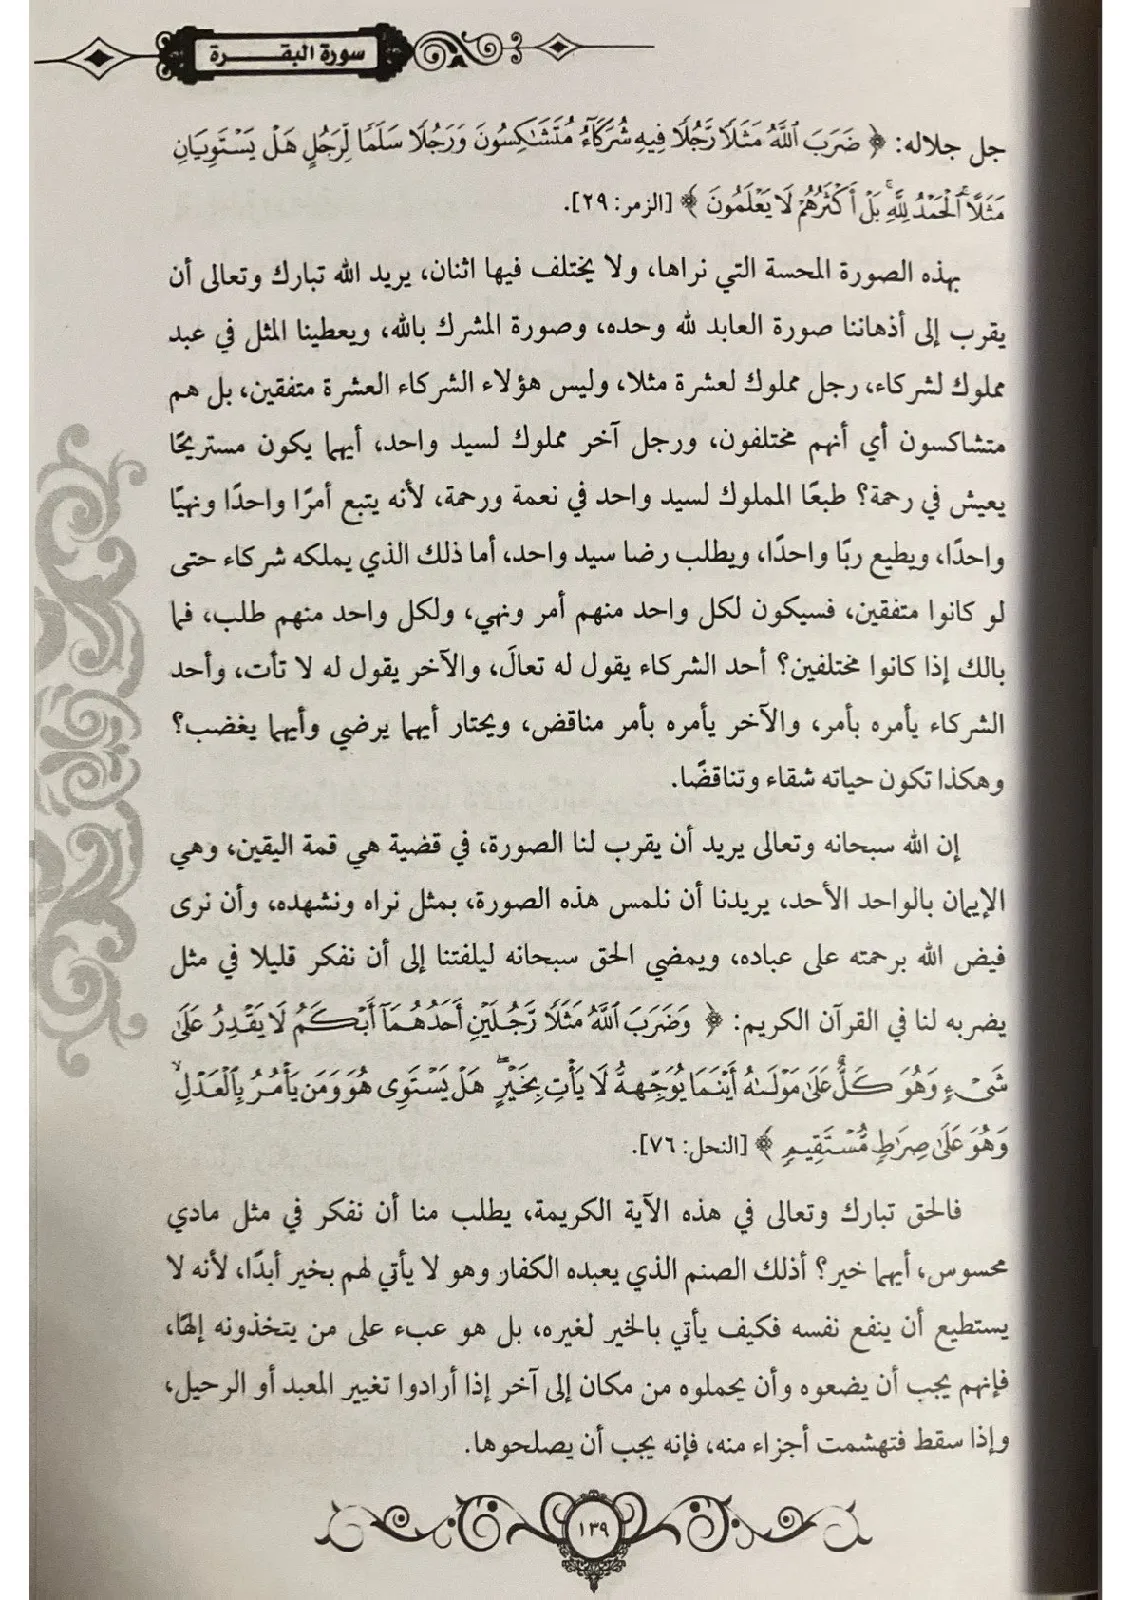 سورة البقرة
جل جلاله: ﴿ ضَرَبَ ٱللَّهُ مَثَلًا رَّجُلًا فِيهِ شُرَكَآءُ مُتَشَٰكِسُونَ وَرَجُلًا سَلَمًا لِّرَجُلٍ هَلْ يَسْتَوِيَانِ
مَثَلًا ۚ ٱلْحَمْدُ لِلَّهِ ۚ بَلْ أَكْثَرُهُمْ لَا يَعْلَمُونَ ﴾ [الزمر: ٢٩].
بهذه الصورة المحسة التي نراها، ولا يختلف فيها اثنان، يريد الله تبارك وتعالى أن
يقرب إلى أذهاننا صورة العابد لله وحده، وصورة المشرك بالله، ويعطينا المثل في عبد
مملوك لشركاء، رجل مملوك لعشرة مثلا، وليس هؤلاء الشركاء العشرة متفقين، بل هم
متشاكسون أي أنهم مختلفون، ورجل آخر مملوك لسيد واحد، أيهما يكون مستريحًا
يعيش في رحمة؟ طبعًا المملوك لسيد واحد في نعمة ورحمة، لأنه يتبع أمرًا واحدًا ونهيًا
واحدًا، ويطيع ربًا واحدًا، ويطلب رضا سيد واحد، أما ذلك الذي يملكه شركاء حتى
لو كانوا متفقين، فسيكون لكل واحد منهم أمر ونهي، ولكل واحد منهم طلب، فما
بالك إذا كانوا مختلفين؟ أحد الشركاء يقول له تعالَ، والآخر يقول له لا تأت، وأحد
الشركاء يأمره بأمر، والآخر يأمره بأمر مناقض، ويحتار أيهما يرضي وأيهما يغضب؟
وهكذا تكون حياته شقاء وتناقضًا.
إن الله سبحانه وتعالى يريد أن يقرب لنا الصورة، في قضية هي قمة اليقين، وهي
الإيمان بالواحد الأحد، يريدنا أن نلمس هذه الصورة، بمثل نراه ونشهده، وأن نرى
فيض الله برحمته على عباده، ويمضي الحق سبحانه ليلفتنا إلى أن نفكر قليلا في مثل
يضربه لنا في القرآن الكريم: ﴿ وَضَرَبَ ٱللَّهُ مَثَلًا رَّجُلَيْنِ أَحَدُهُمَآ أَبْكَمُ لَا يَقْدِرُ عَلَىٰ
شَىْءٍ وَهُوَ كَلٌّ عَلَىٰ مَوْلَىٰهُ أَيْنَمَا يُوَجِّههُّ لَا يَأْتِ بِخَيْرٍ ۖ هَلْ يَسْتَوِى هُوَ وَمَن يَأْمُرُ بِٱلْعَدْلِ ۙ
وَهُوَ عَلَىٰ صِرَٰطٍ مُّسْتَقِيمٍ ﴾ [النحل: ٧٦].
فالحق تبارك وتعالى في هذه الآية الكريمة، يطلب منا أن نفكر في مثل مادي
محسوس، أيهما خير؟ أذلك الصنم الذي يعبده الكفار وهو لا يأتي لهم بخير أبدًا، لأنه لا
يستطيع أن ينفع نفسه فكيف يأتي بالخير لغيره، بل هو عبء على من يتخذونه إلهًا،
فإنهم يجب أن يضعوه وأن يحملوه من مكان إلى آخر إذا أرادوا تغيير المعبد أو الرحيل،
وإذا سقط فتهشمت أجزاء منه، فإنه يجب أن يصلحوها.
١٣٩